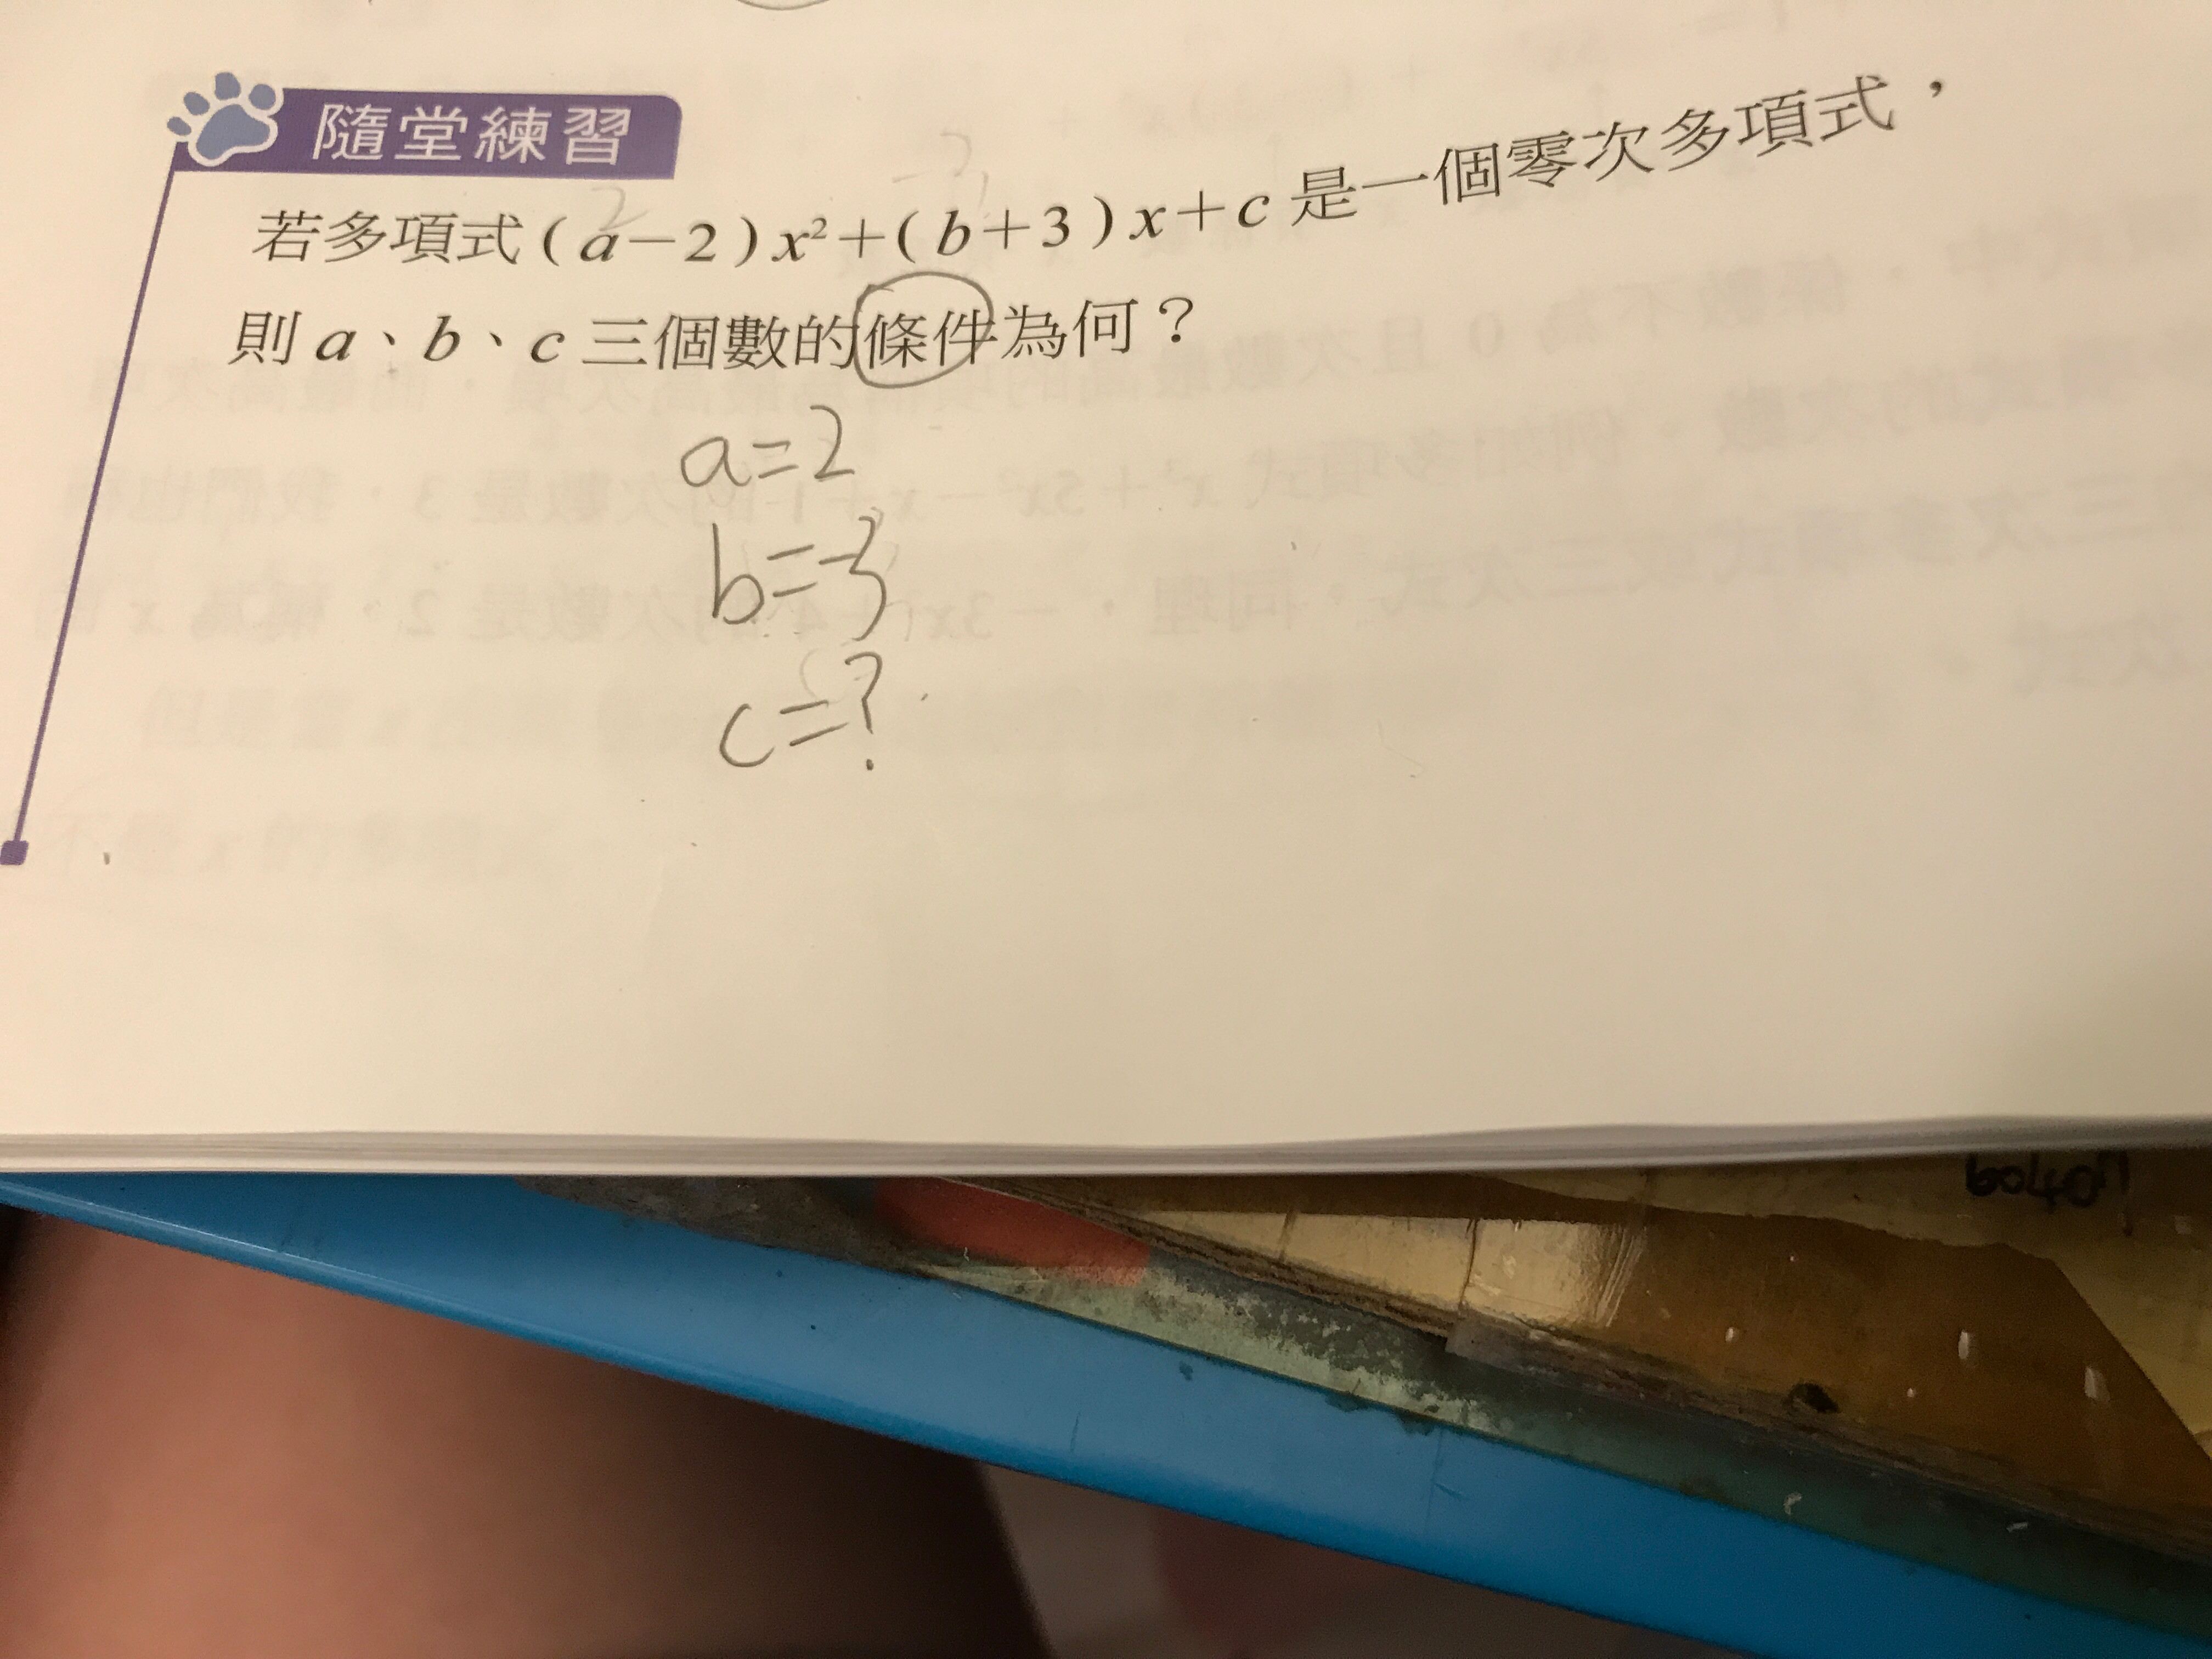 隨堂練習
若多項式(a－2)x²＋(b＋3)x＋c是一個零次多項式，
則a、b、c三個數的條件為何？
a=2
b=-3
c=?